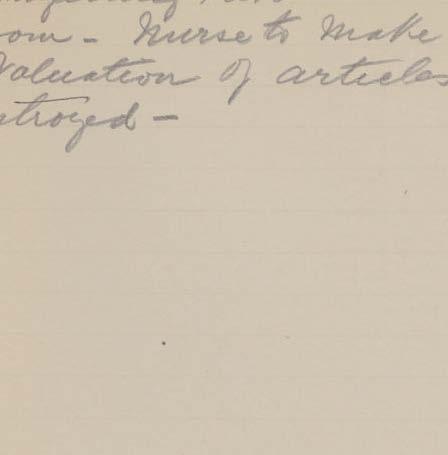 om - Nurse to make
Valuation of articles
stroyed -